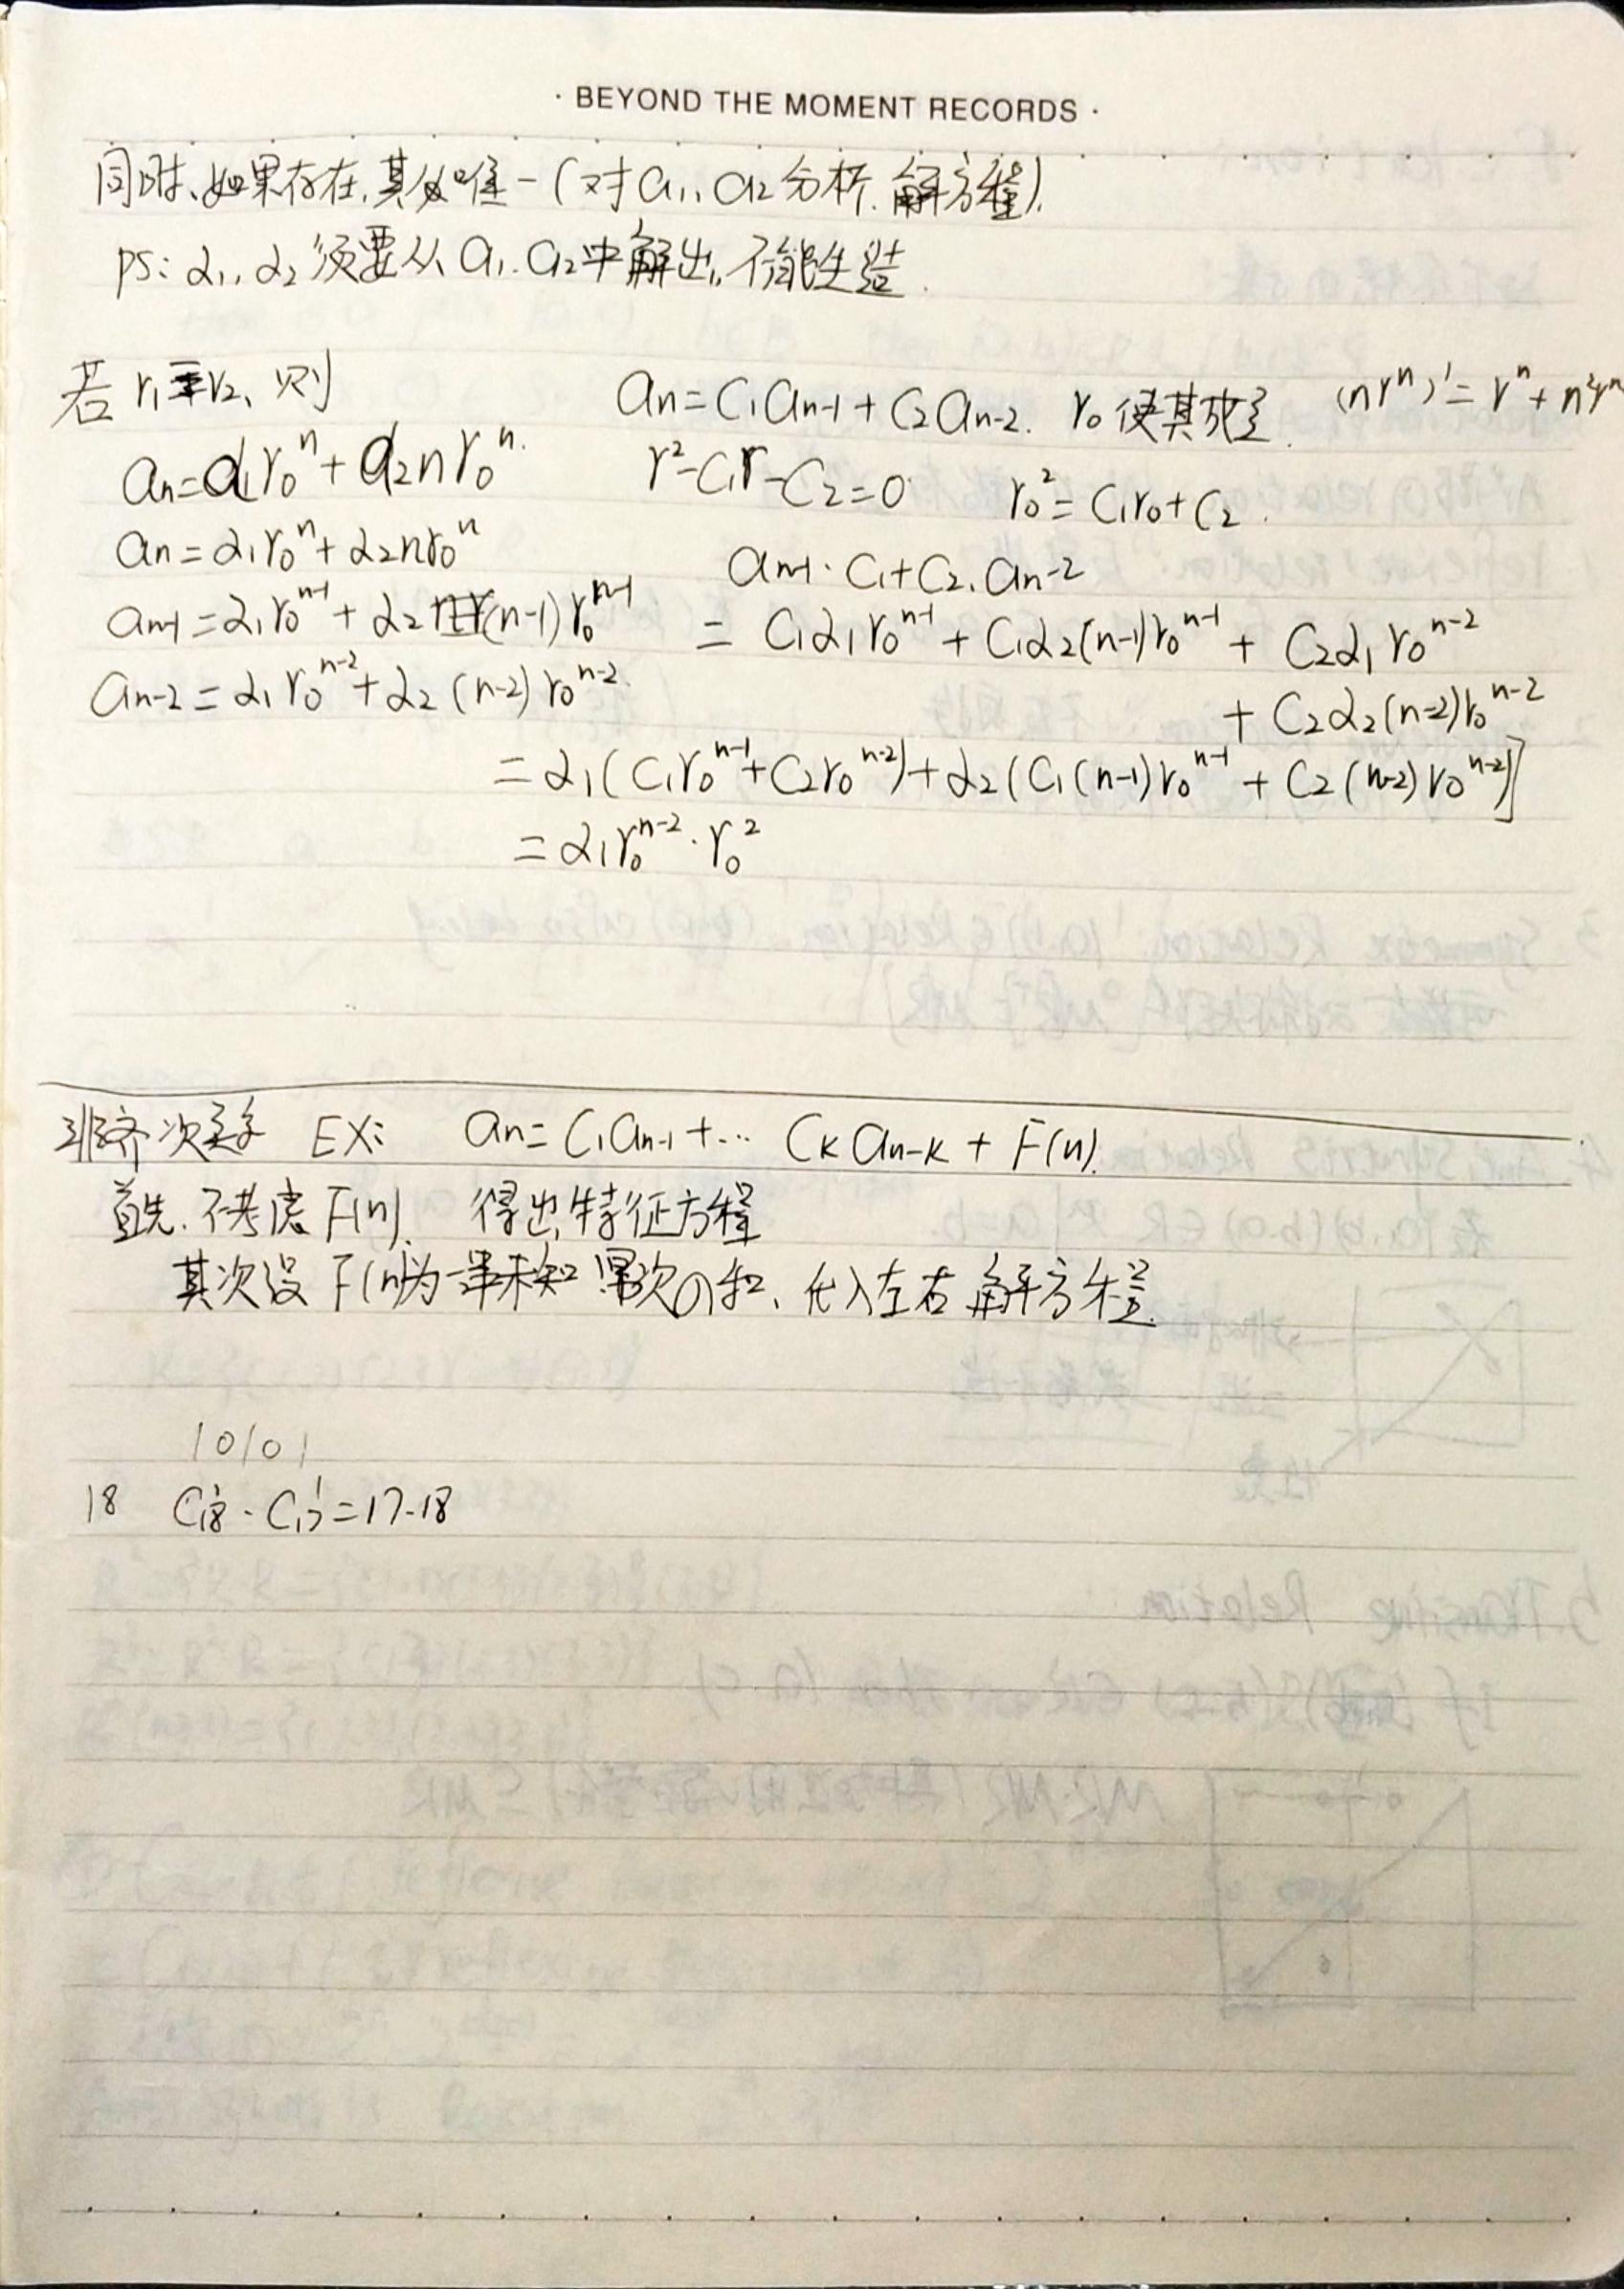 · BEYOND THE MOMENT RECORDS ·
同时、如果存在,其必唯一(对a₁,a₂分析.解方程).
PS: α₁,α₂须要从a₁.a₂中解出,不能生造.
若 r₁=r₂、则
aₙ=α₁r₀ⁿ+α₂nr₀ⁿ.
aₙ=α₁r₀ⁿ+α₂nr₀ⁿ
aₙ₋₁=α₁r₀ⁿ⁻¹+α₂(n-1)r₀ⁿ⁻¹
aₙ₋₂=α₁r₀ⁿ⁻²+α₂(n-2)r₀ⁿ⁻².
aₙ=C₁aₙ₋₁+C₂aₙ₋₂. r₀使其成立. (nrⁿ)'=rⁿ+n²rⁿ
r²-C₁r-C₂=0 r₀²=C₁r₀+C₂.
aₙ₋₁·C₁+C₂.aₙ₋₂
= C₁α₁r₀ⁿ⁻¹+C₁α₂(n-1)r₀ⁿ⁻¹+C₂α₁r₀ⁿ⁻²
+C₂α₂(n-2)r₀ⁿ⁻²
=α₁(C₁r₀ⁿ⁻¹+C₂r₀ⁿ⁻²)+α₂(C₁(n-1)r₀ⁿ⁻¹+C₂(n-2)r₀ⁿ⁻²)]
=α₁r₀ⁿ⁻²·r₀²
非齐次关系 EX: aₙ=C₁aₙ₋₁+… Cₖaₙ₋ₖ+F(n).
首先.不考虑F(n). 得出特征方程
其次设F(n)为一串未知幂次的和、代入左右解方程.
10101
18 C₁₈¹·C₁₇¹=17·18